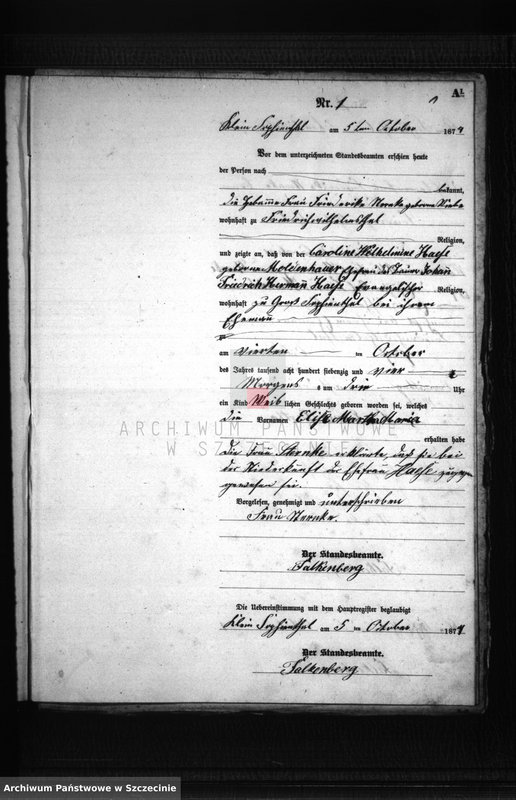 A1.
Nr. 1
Klein Sophienthal am 5ten October 1874
Vor dem unterzeichneten Standesbeamten erschien heute
der Person nach
bekannt,
die Hebamme Frau Friederike geborene
wohnhaft zu Friedrichwilhelmsthal
Religion,
und zeigte an, daß von der Caroline Wilhelmine Haese
geborne Moldenhauer Ehefrau des Bauer Johan
Friedrich Herman Haese Evangelischer Religion,
wohnhaft zu Groß Sophienthal bei ihrem
Ehemann
am vierten ten October
des Jahres tausend acht hundert siebenzig und vier
Morgens um drei Uhr
ein Kind Weiblichen Geschlechts geboren worden sei, welches
die Vornamen Elise Martha Maria
erhalten habe
Die Frau erklärte, daß sie bei
der Niederkunft der Ehefrau Haese zugegen
gewesen sei.
Vorgelesen, genehmigt und unterschrieben
Frau
Der Standesbeamte.
Falkenberg
Die Uebereinstimmung mit dem Hauptregister beglaubigt
Klein Sophienthal am 5 ten October 1874
Der Standesbeamte.
Falkenberg
ARCHIWUM PAŃSTWOWE
W SZCZECINIE
Archiwum Państwowe w Szczecinie